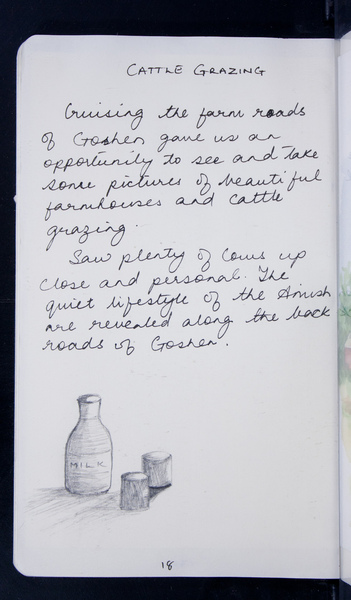 CATTLE GRAZING
Cruising the farm roads
of Goshen gave us an
opportunity to see and take
some pictures of beautiful
farmhouses and cattle
grazing.
Saw plenty of cows up
close and personal. The
quiet lifestyle of the Amish
are revealed along the back
roads of Goshen.
MILK
18